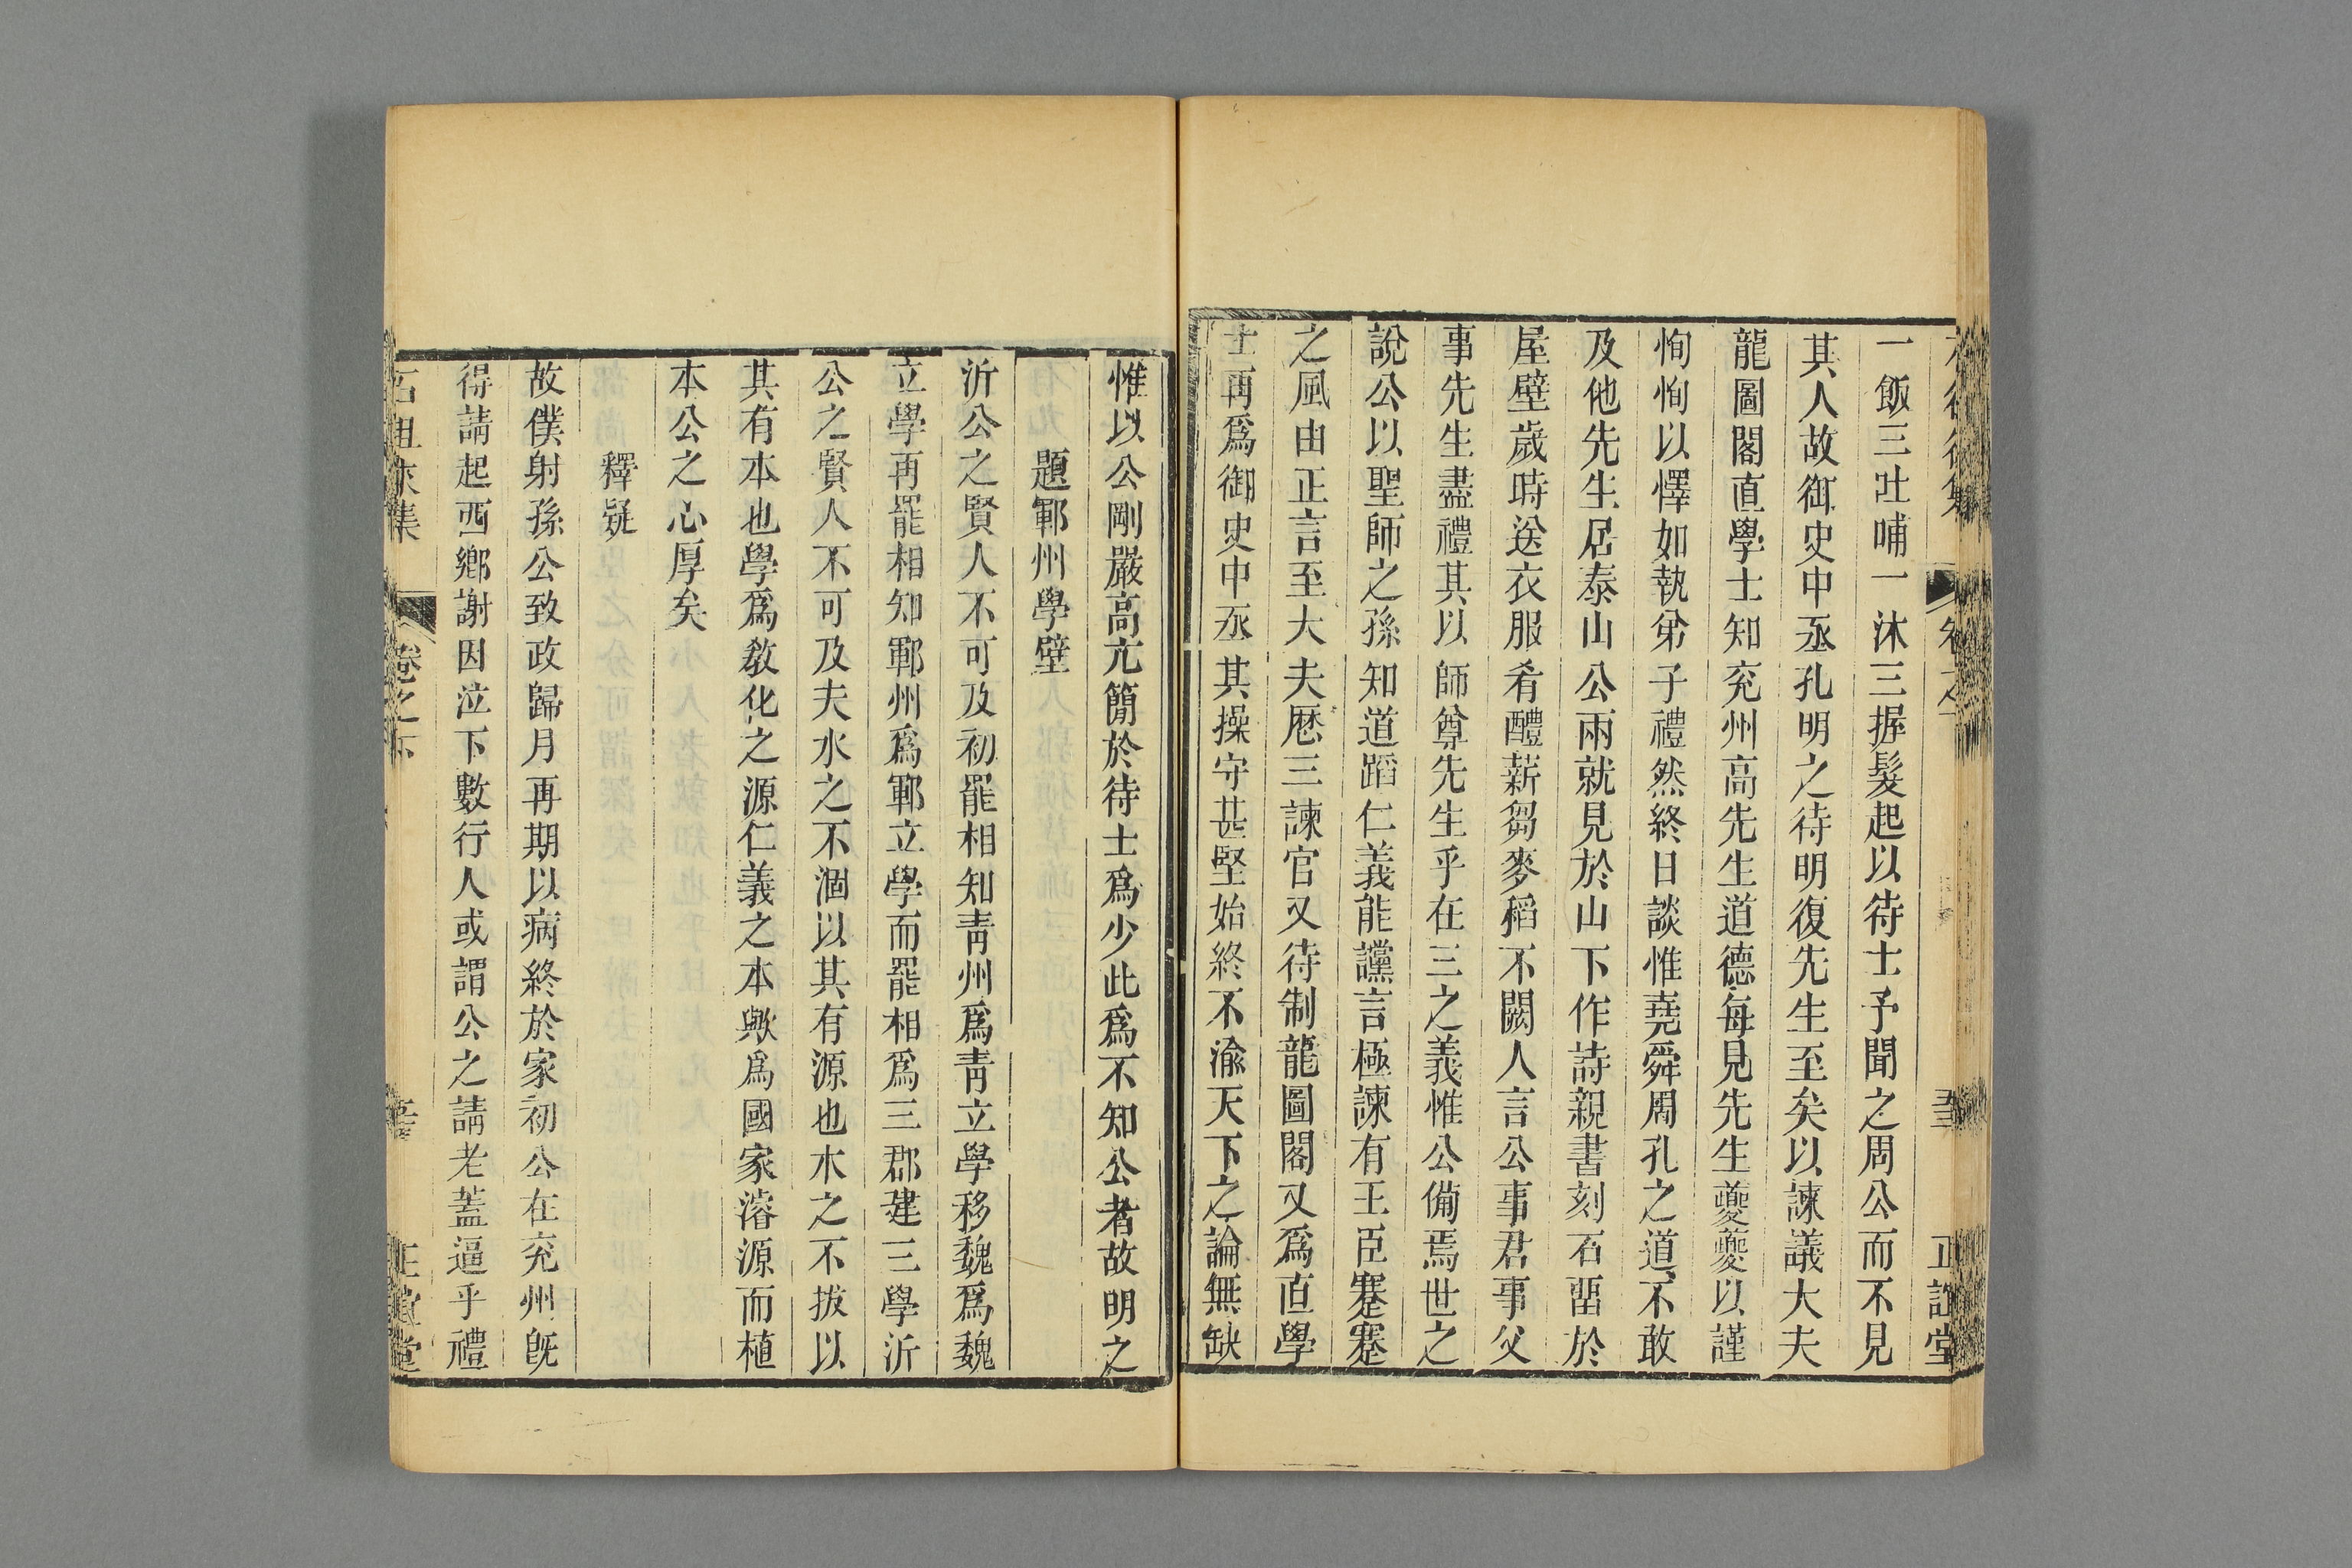 一飯三吐哺一沐三握髮起以待士予聞之周公而不見
其人故御史中丞孔明之待明復先生至矣以諫議大夫
龍圖閣直學士知兖州高先生道德每見先生夔夔以謹
恂恂以懌如執弟子禮然終日談惟堯舜周孔之道不敢
及他先生居泰山公兩就見於山下作詩親書刻石畱於
屋壁歲時送衣服肴醴薪芻麥稻不闕人言公事君事父
事先生盡禮其以師尊先生乎在三之義惟公備焉世之
說公以聖師之孫知道蹈仁義能讜言極諫有王臣蹇蹇
之風由正言至大夫歷三諫官又待制龍圖閣又爲直學
士再爲御史中丞其操守甚堅始終不渝天下之論無缺
惟以公剛嚴高亢簡於待士爲少此爲不知公者故明之
題鄆州學壁
沂公之賢人不可及初罷相知靑州爲靑立學移魏爲魏
立學再罷相知鄆州爲鄆立學而罷相爲三郡建三學沂
公之賢人不可及夫水之不涸以其有源也木之不拔以
其有本也學爲敎化之源仁義之本歟爲國家濬源而植
本公之心厚矣
釋疑
故僕射孫公致政歸月再期以病終於家初公在兖州旣
得請起西鄉謝因泣下數行人或謂公之請老蓋逼乎禮
石徂徠集 卷之下 正誼堂